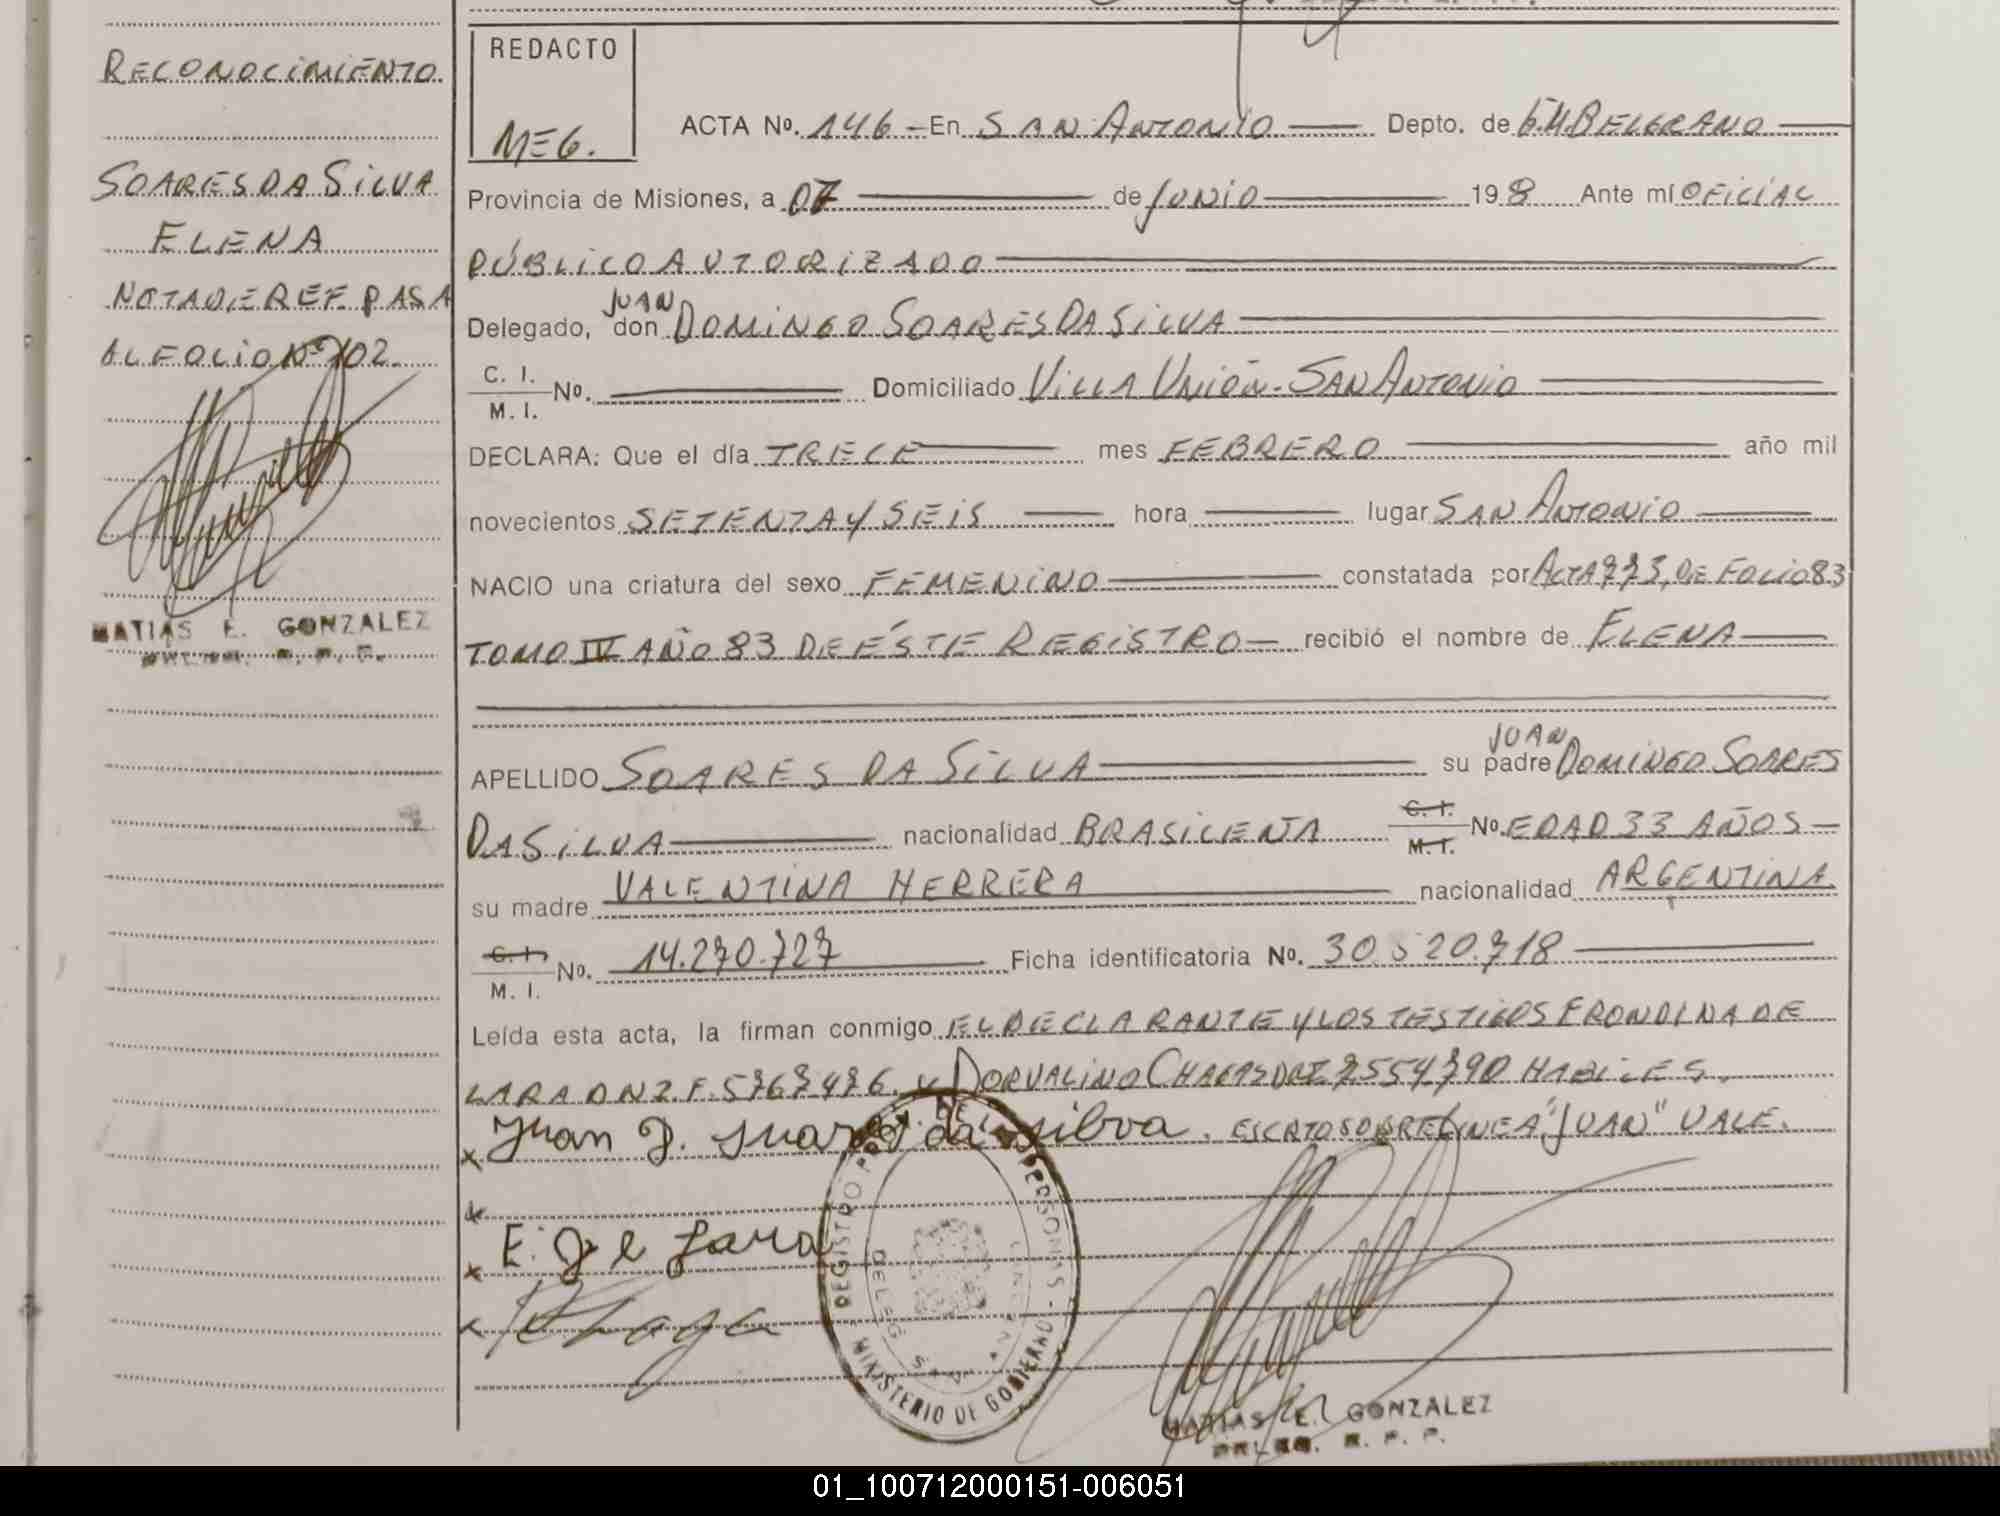 RECONOCIMIENTO
SOARES DA SILVA
ELENA
NOTA DE REF. PASA
AL FOLIO Nº 202.
MATIAS E. GONZALEZ
REDACTO
MEG.
ACTA Nº. 146 - En SAN ANTONIO Depto. de G.M. BELGRANO
Provincia de Misiones, a 07 de JUNIO 198 Ante mí OFICIAL
PÚBLICO AUTORIZADO
JUAN
Delegado, don DOMINGO SOARES DA SILVA
C. I. M. I. No. Domiciliado VILLA UNIÓN - SAN ANTONIO
DECLARA: Que el día TRECE mes FEBRERO año mil
novecientos SETENTA Y SEIS hora lugar SAN ANTONIO
NACIO una criatura del sexo FEMENINO constatada por ACTA 773, DE FOLIO 83
TOMO IV AÑO 83 DE ÉSTE REGISTRO recibió el nombre de ELENA
JUAN
APELLIDO SOARES DA SILVA su padre DOMINGO SOARES
DA SILVA nacionalidad BRASILEÑA C. I. M. I. No. EDAD 33 AÑOS
su madre VALENTINA HERRERA nacionalidad ARGENTINA
C. I. M. I. No. 14.270.727 Ficha identificatoria No. 30.520.718
Leída esta acta, la firman conmigo EL DECLARANTE Y LOS TESTIGOS ERONDINA DE
LARA DNI. F. 5767476. y DORVALINO CHAGAS DNI. 7554790 HABILES.
Juan D. suares da silva. ESCRITO SOBRE LINEA "JUAN" VALE.
E. de Lara
REGISTRO PROV. DE LAS PERSONAS - MINISTERIO DE GOBIERNO
MATIAS E. GONZALEZ
01_100712000151-006051